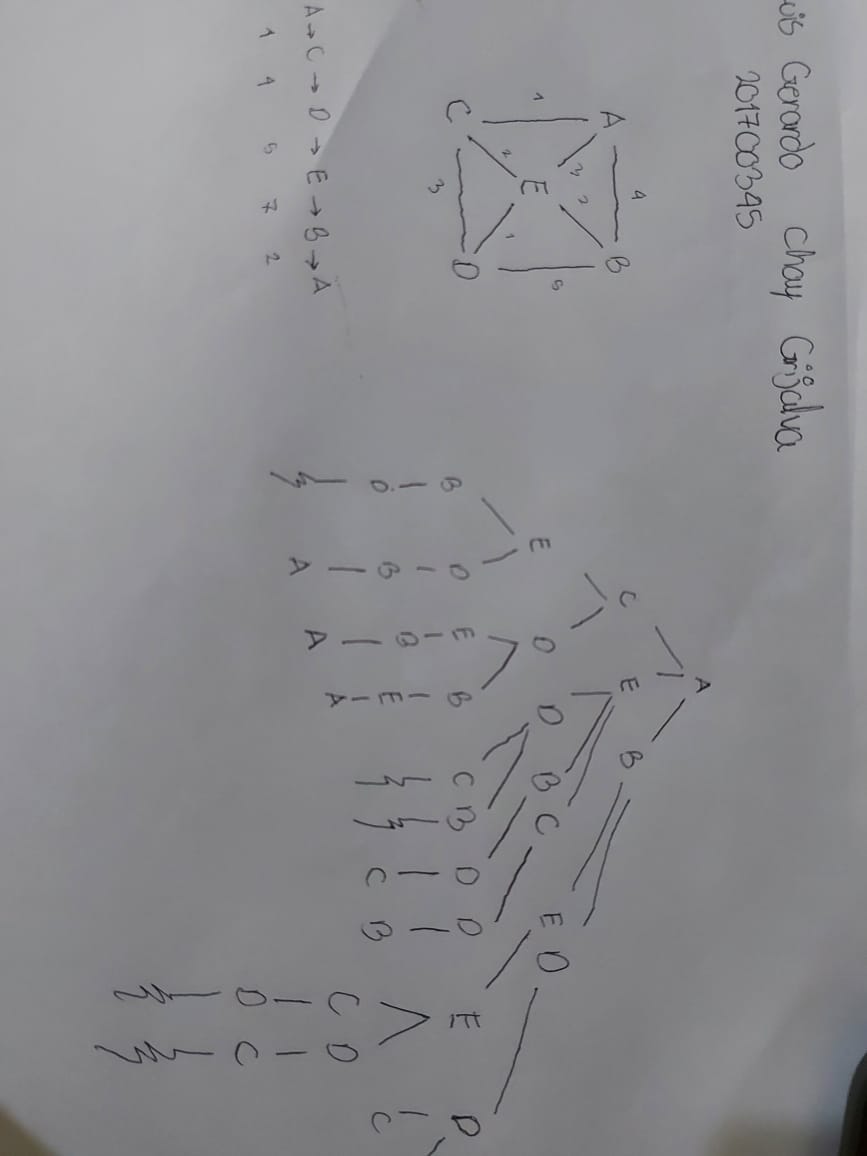 uis Gerardo Chay Grijalva
201700345
4
A B
3 2
1 5
E
2 1
C D
3
A→C→D→E→B→A
1 4 5 7 2
A
C E B
E D D B C E D
B D E B C B D D E D
D B B E C B C D C
A A A
D C